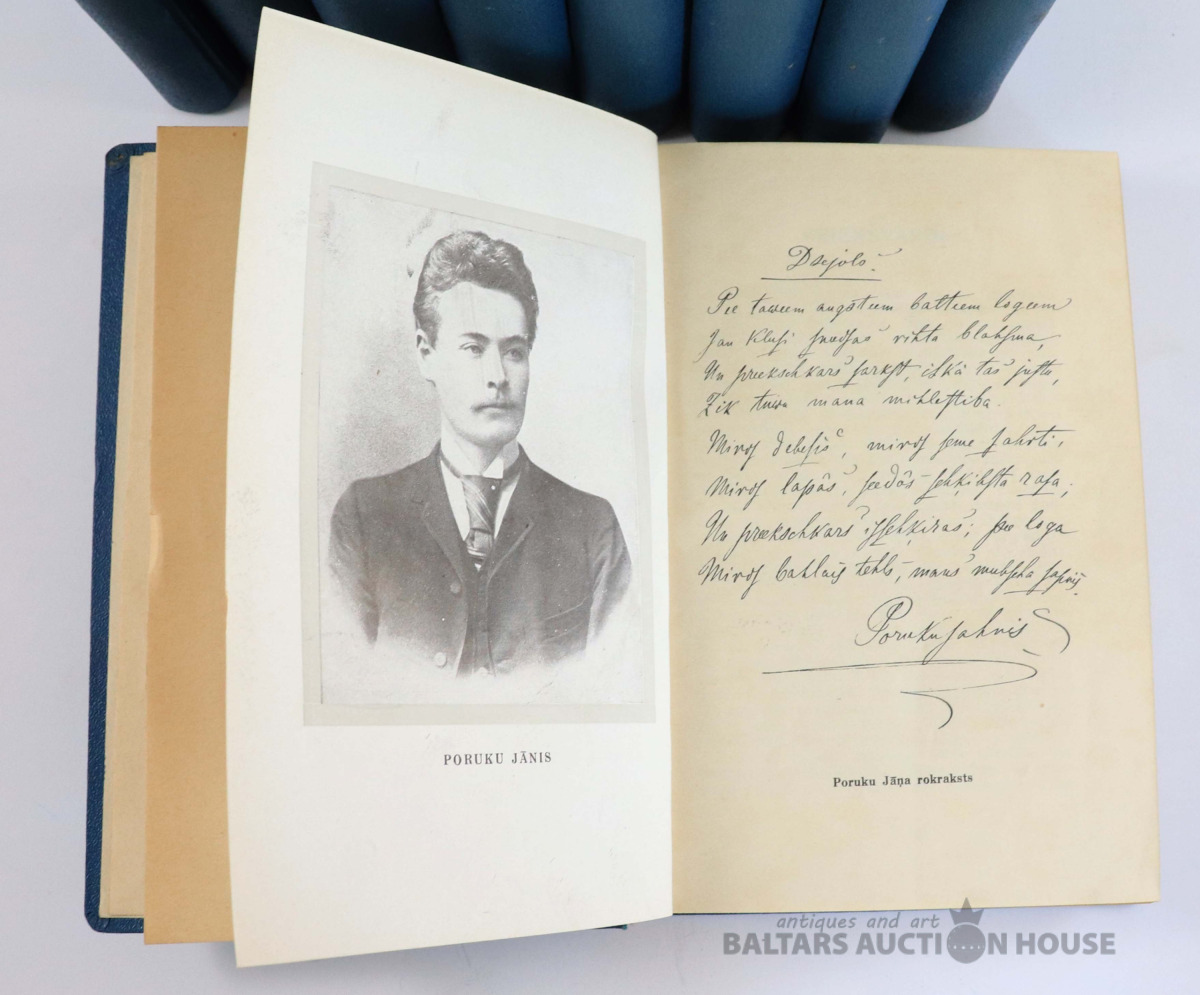 PORUKU JĀNIS
Dsejols.
Pee taweem augsteem balteem logeem
Jau klusi rihta blahsma,
Un preekschkars sarkst, it kā tas justu,
Zik tuwu mana mihlestiba.
Mirdf debesis, mirdf seme sahrti,
Mirdf lapās, seedōs schķihsta rasa,
Un preekschkars isschķiras; pee loga
Mirdf bahlais tehls, mans muhscha sapnis.
Poruku Jahnis
Poruku Jāņa rokraksts
antiques and art
BALTARS AUCTION HOUSE